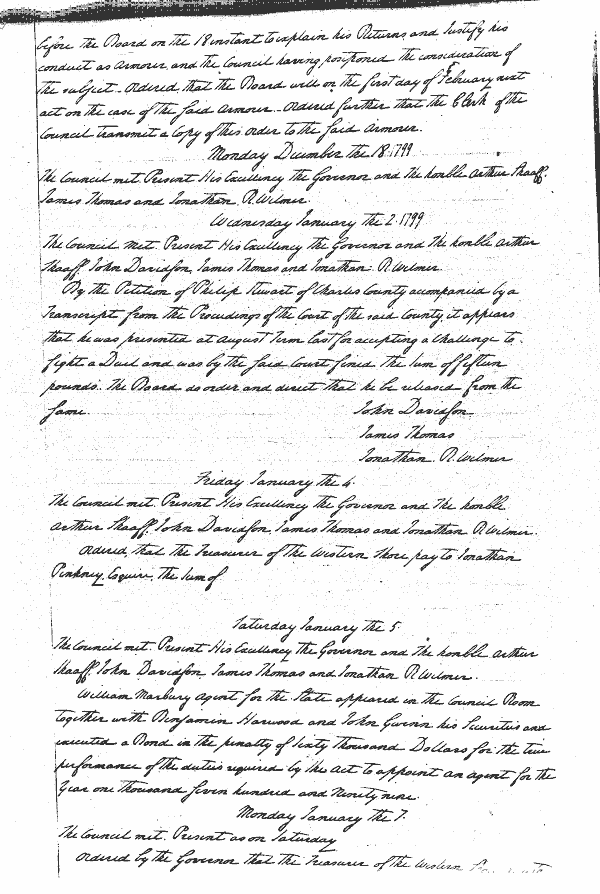 before the Board on the 18 instant to explain his Returns and Justify his
conduct as Armourer and the Council having postponed the consideration of
the subject. Ordered that the Board will on the first day of February next
act on the case of the said Armourer. Ordered further that the Clerk of the
Council transmit a Copy of this order to the said Armourer.
Monday December the 18. 1799
The Council met. Present His Excellency the Governor and the honble Arthur Shaaff.
James Thomas and Jonathan R. Wilmer.
Wednesday January the 2. 1799
The Council met. Present His Excellency the Governor and the honble Arthur
Shaaff, John Davidson, James Thomas and Jonathan R. Wilmer.
By the Petition of Philip Stewart of Charles County acompanied by a
Transcript from the Proceedings of the Court of the said County, it appears
that he was presented at August Term last for accepting a Challenge to
fight a Duel and was by the said Court fined the sum of fifteen
pounds. The Board do order and direct that he be released from the
same.
John Davidson
James Thomas
Jonathan R. Wilmer
Friday January the 4.
The Council met. Present His Excellency the Governor and the honble
Arthur Shaaff, John Davidson, James Thomas and Jonathan R. Wilmer.
Ordered, that the Treasurer of the Western Shore pay to Jonathan
Pinkney, Esquire, the sum of
Saturday January the 5.
The Council met. Present His Excellency the Governor and the honble Arthur
Shaaff, John Davidson, James Thomas and Jonathan R. Wilmer.
William Marbury Agent for the State appeared in the Council Room
together with Benjamin Harwood and John Gwinn his Securities and
executed a Bond in the penalty of Sixty thousand Dollars for the true
performance of the duties required by the Act to appoint an agent for the
Year one thousand seven hundred and Ninety nine.
Monday January the 7.
The Council met. Present as on Saturday
Ordered by the Governor that the Treasurer of the Western